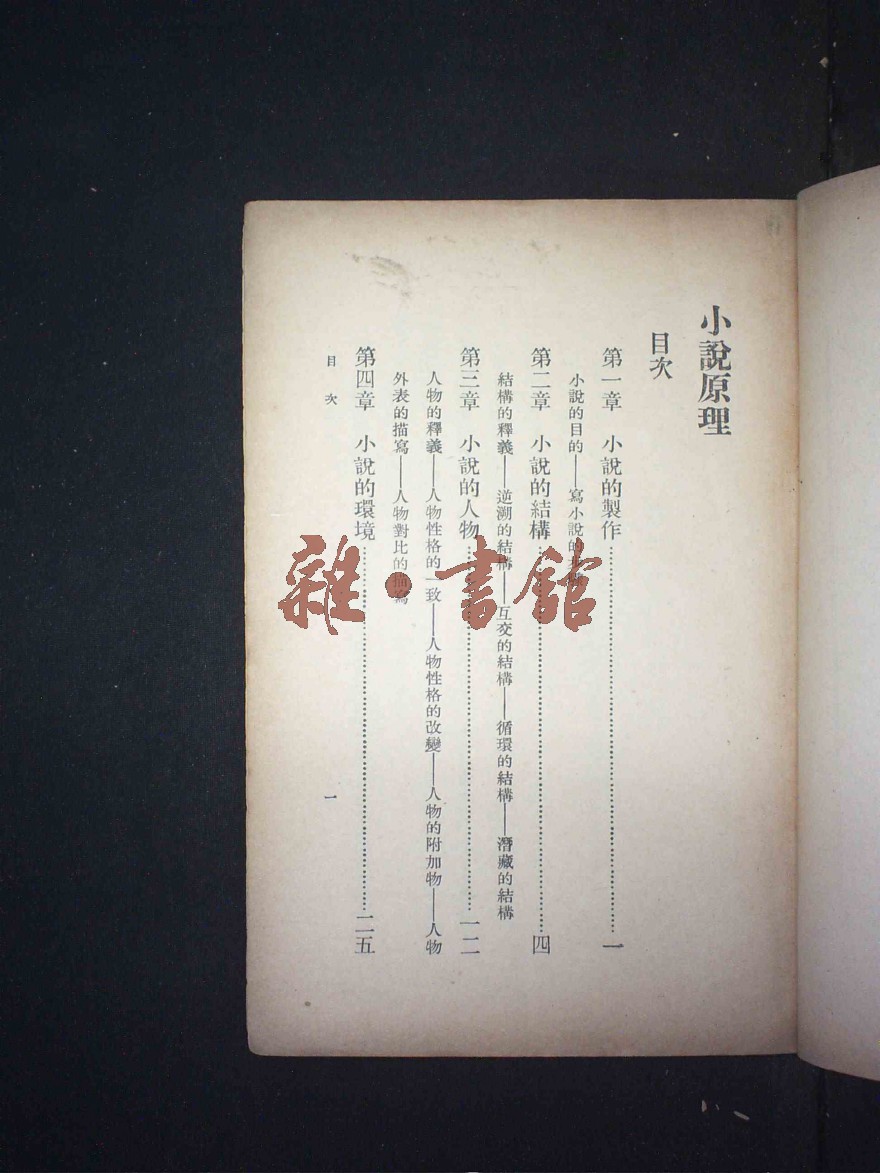 小說原理
目次
第一章　小說的製作……一
小說的目的——寫小說的
第二章　小說的結構……四
結構的釋義——逆溯的結構——互交的結構——循環的結構——潛藏的結構
第三章　小說的人物……一二
人物的釋義——人物性格的一致——人物性格的改變——人物的附加物——人物
外表的描寫——人物對比的描寫
第四章　小說的環境……二五
目次
一
雜·書館